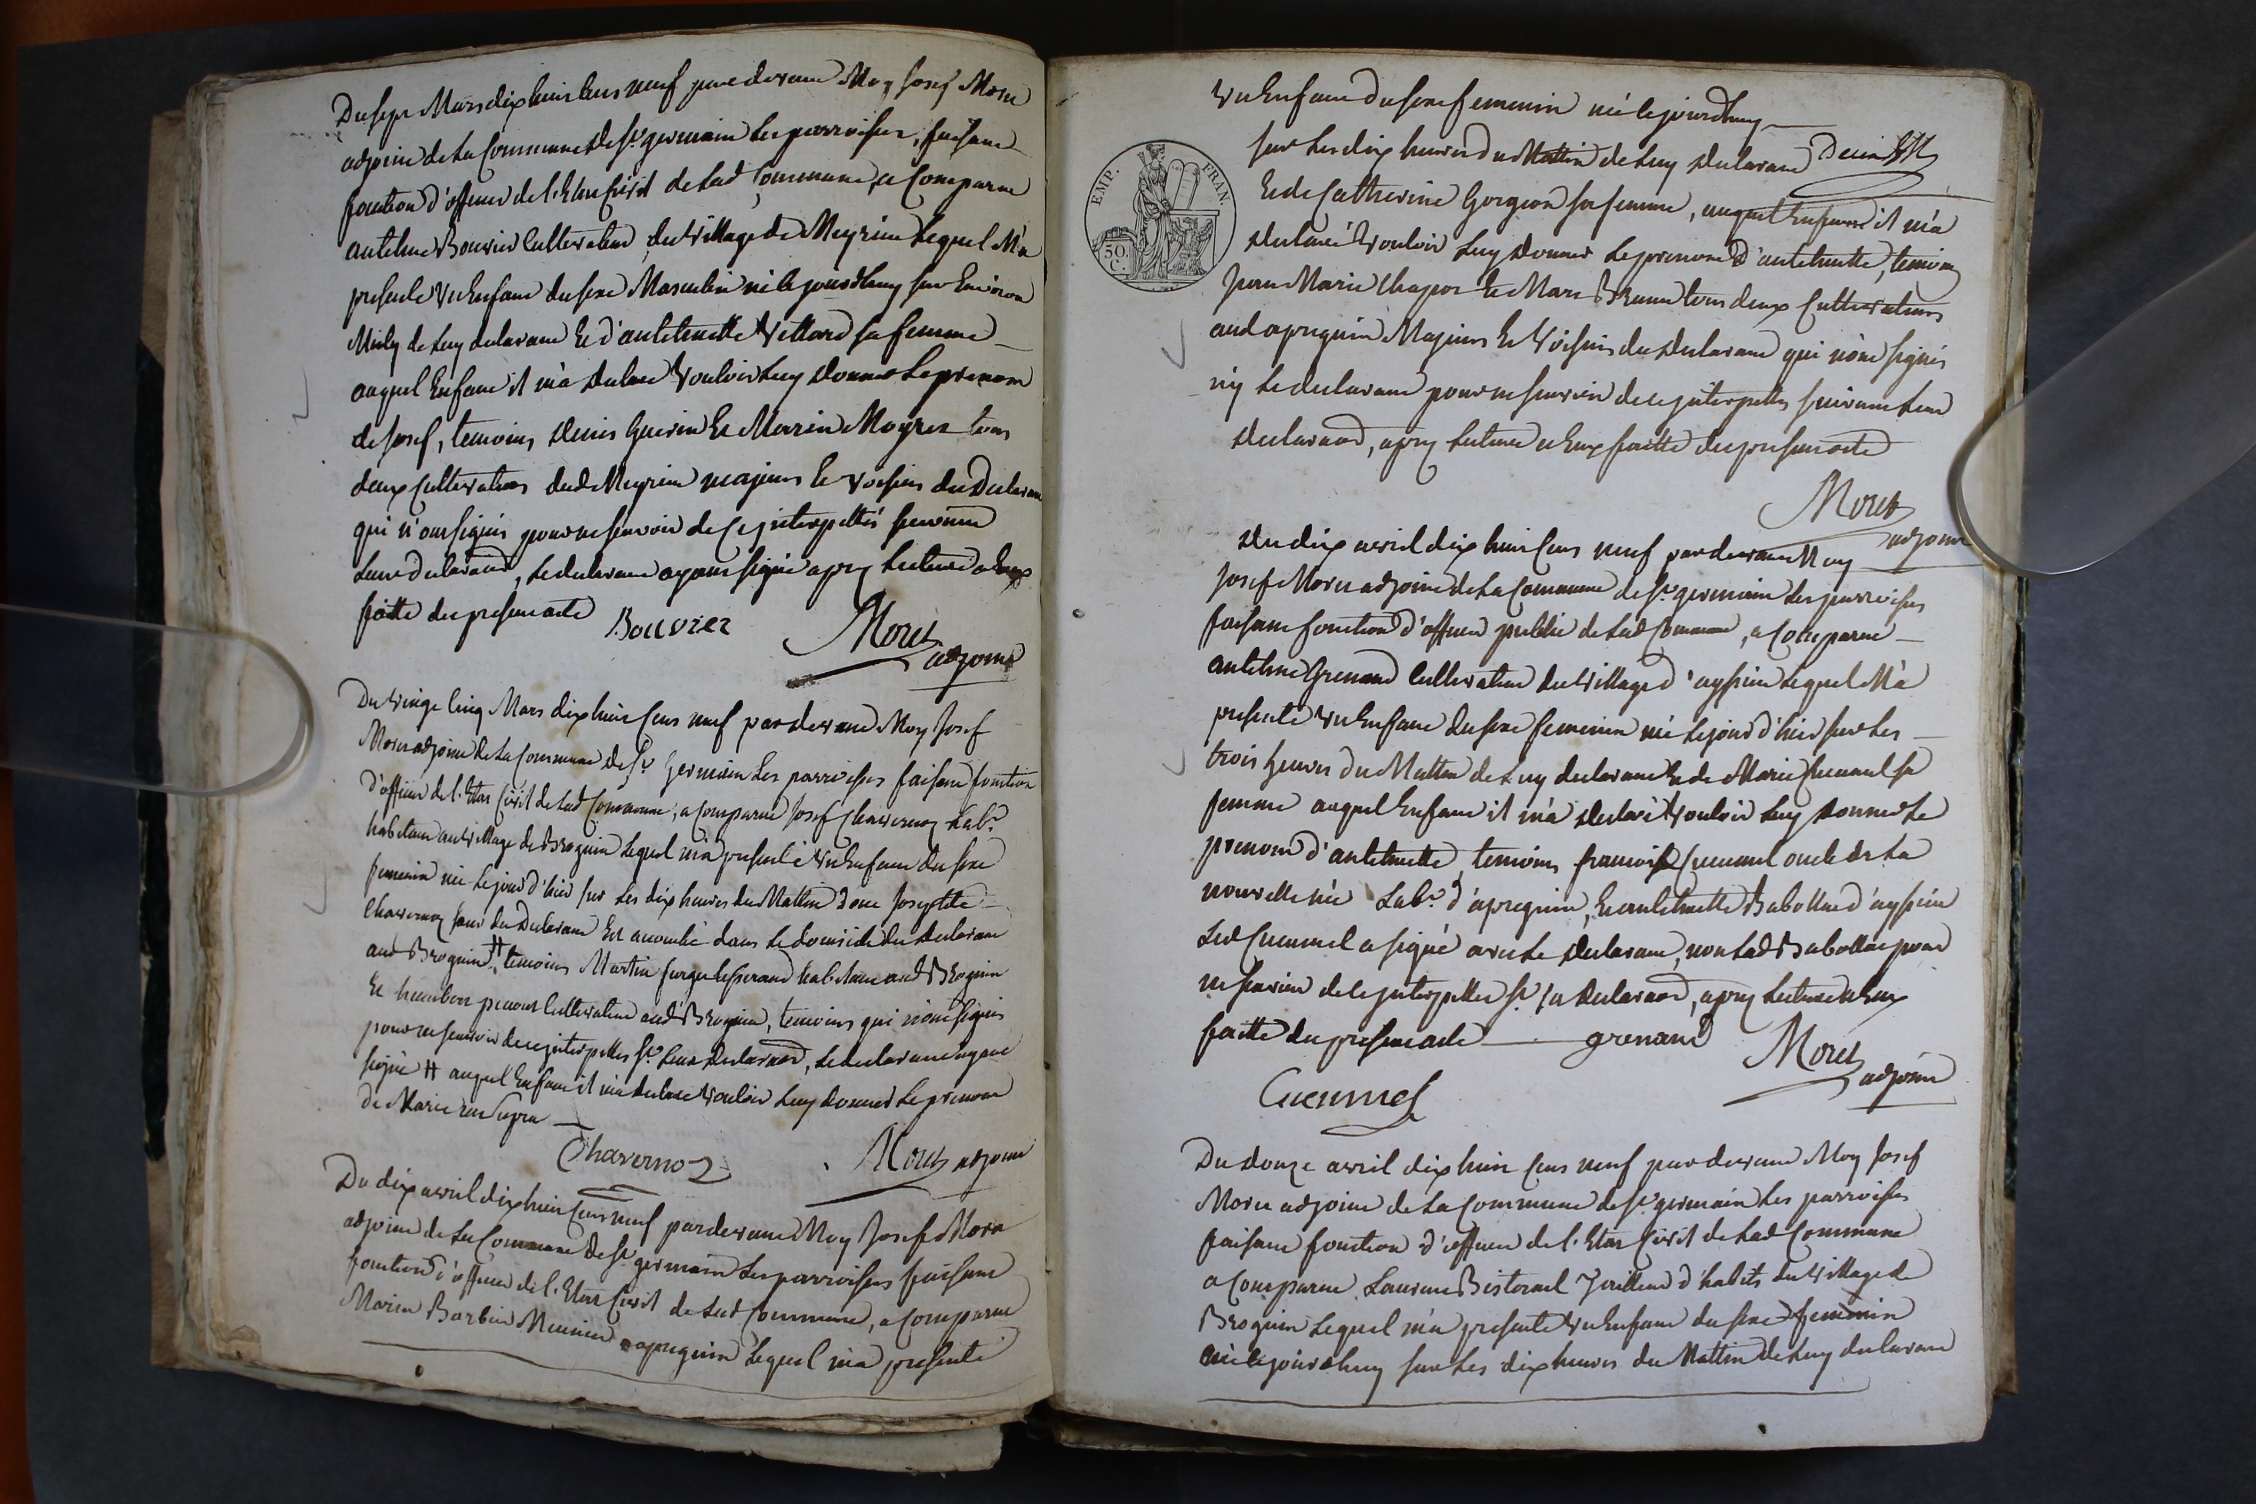 Du sept Mars dix huit Cens neuf par devant Moy Josef Moret
adjoint de La Commune de St germain Les parroisses, faisant
fonction d'officier de l'Etat Civil de Lad Commune, a Comparu
antelme Bouvier Cultivateur du Village de Meyrieu Lequel M'a
presenté Un Enfant du sexe Masculin né le jourdhuy sur Environ
Midy de Luy declarant Et d'antelmette Vettard sa femme
auquel Enfant il m'a declaré Vouloir Luy donner Le prenom
de Josef, temoins Denis Guerin Et Marin Moyret tous
deux Cultivateurs dud Meyrieu majeurs Et Voisins du Declarant
qui n'ont signés pour ne sçavoir de Ce jnterpellés suivant
Leur declaration, Le declarant ayant signé apres Lecture a Eux
faitte du present acte Bouvier Moret
adjoint
Du Vingt Cinq Mars dix huit Cens neuf par devant Moy Josef
Moret adjoint de La Commune de St Germain Les parroisses faisant fonction
d'officier de l'Etat Civil de Lad Commune, a Comparu Josef Chavernoz Labr
habitant au Village de Brognin Lequel m'a presenté Un Enfant du sexe
feminin né Le jour d'hier sur Les dix heures du Mattin dont Josephte
Chavernoz soeur du Declarant Est accouchée dans Le domicile du declarant
aud Brognin # temoins Martin habitant aud Brognin
Et humbert Cultivateur aud Brognin, temoins qui n'ont signés
pour ne sçavoir de ce jnterpellés St Leur declaration, Le declarant ayant
signé # auquel Enfant il m'a declaré Vouloir Luy donner Le prenom
de Marie
Chavernoz Moret adjoint
Du dix avril dix huit Cens neuf par devant Moy Josef Moret
adjoint de La Commune de St germain Les parroisses faisant
fonction d'officier de l'Etat Civil de Lad Commune, a Comparu
Marin Barbin Meunier a apregnin Lequel m'a presenté
Un Enfant du sexe feminin né le jourdhuy
sur Les dix heures du Mattin de Luy declarant
Et de Catherine Gorgeon sa femme, auquel Enfant il m'a
declaré Vouloir Luy donner Le prenom d'antelmette, temoins
Jean Marie Chapot Et Marc Brunet tous deux Cultivateurs
aud apregnin Majeurs Et Voisins du declarant qui n'ont signés
ny Le declarant pour ne sçavoir de ce jnterpellés suivant Leur
declaration, apres Lecture a Eux faitte du present acte
Moret
adjoint
EMP. FRAN.
50.
C.
Du dix avril dix huit Cens neuf par devant Moy
Josef Moret adjoint de La Commune de St germain Les parroisses
faisant fonction d'officier public de Lad Commune, a Comparu
antelme Grenand Cultivateur du Village d'ayssieu Lequel M'a
presenté Un Enfant du sexe feminin né Le jour d'hier sur Les
trois heures du Mattin de Luy declarant Et de Marie Cueumel sa
femme auquel Enfant il m'a declaré Vouloir Luy donner Le
prenom d'antelmette, temoins francois Cueumel oncle de La
nouvelle née Labr d'apregnin, Et antelmette Rabollat d'ayssieu
Led Cueumel a signé avec Le declarant, non Lad Rabollat pour
ne sçavoir de ce jnterpellée St sa declaration, apres Lecture a Eux
faitte du present acte grenand Moret
adjoint
Cueumel
Du douze avril dix huit Cens neuf par devant Moy Josef
Moret adjoint de La Commune de St germain Les parroisses
faisant fonction d'officier de l'Etat Civil de Lad Commune
a Comparu Laurent Bistornel Tailleur d'habits du Village de
Brognin Lequel m'a presenté Un Enfant du sexe feminin
né le jourdhuy sur Les dix heures du Mattin de Luy declarant